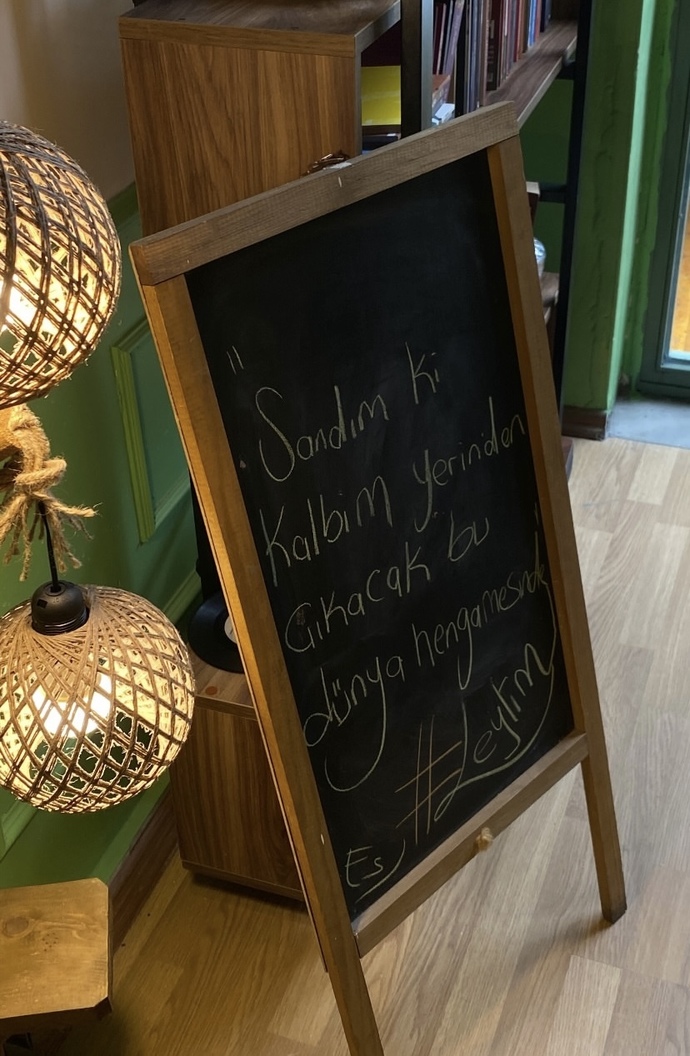 "Sandım ki
Kalbim yerinden
Çıkacak bu
dünya hengamesinde"
#Leylim
Es